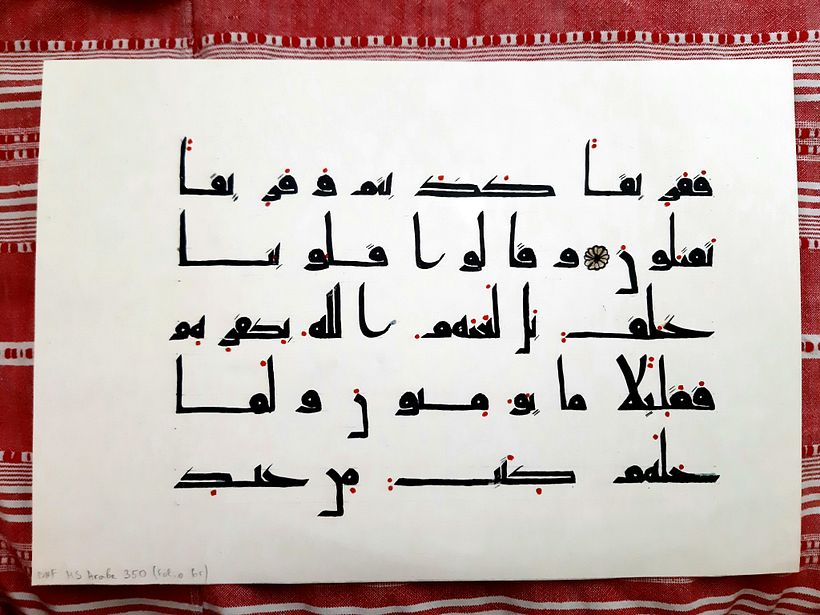 ففريقا كذبتم و فريقا
تقتلون و قالوا قلوبنا
غلف بل لعنهم الله بكفرهم
فقليلا ما يومنون و لما
جاهم كتب من عند
BNF MS Arabe 350